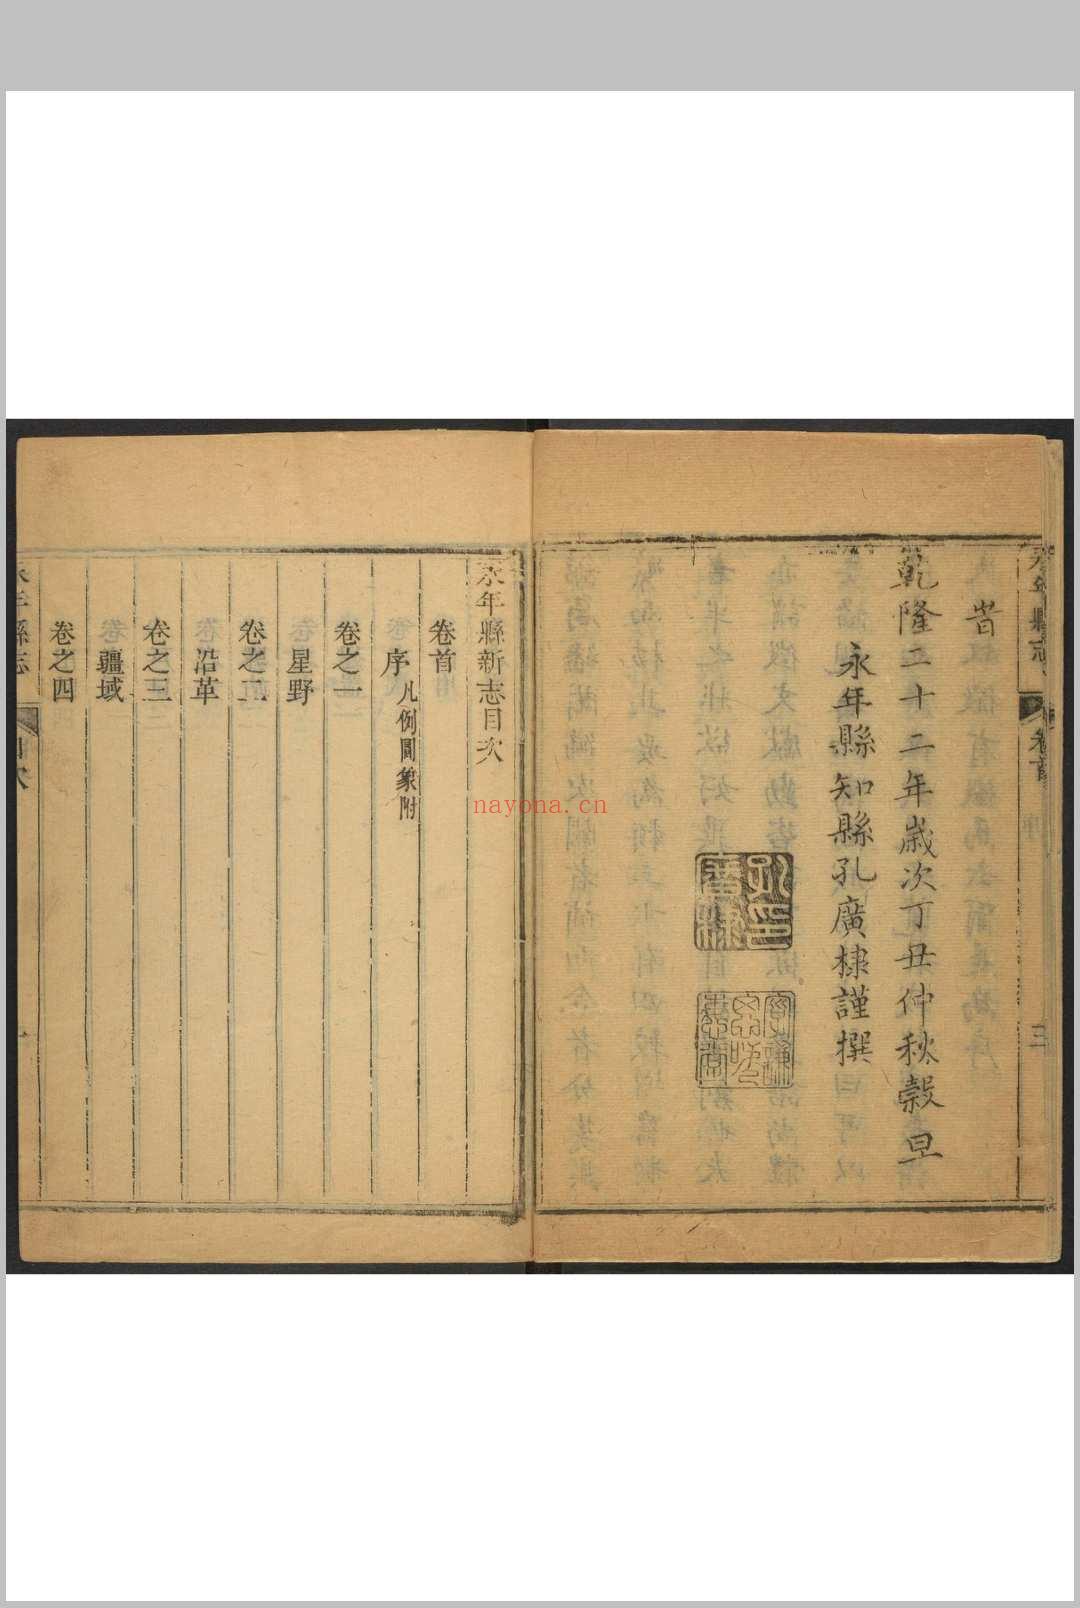 永年縣志
卷首
序
三
旹
乾隆二十二年歲次丁丑仲秋穀旦
永年縣知縣孔廣棣謹撰
永年縣新志目次
卷首
序 凡例圖象附
卷之一
星野
卷之二
沿革
卷之三
疆域
卷之四
永年縣志
目次
一
nayona.cn